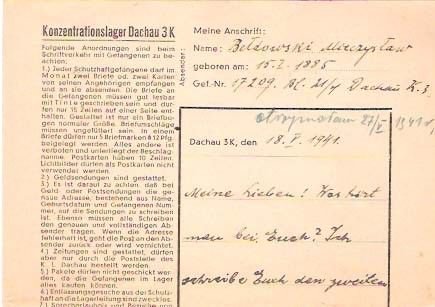 Konzentrationslager Dachau 3 K
Folgende Anordnungen sind beim
Schriftverkehr mit Gefangenen zu be-
achten:
1.) Jeder Schutzhaftgefangene darf im
Monat zwei Briefe od. zwei Karten
von seinen Angehörigen empfangen
und an sie absenden. Die Briefe an
die Gefangenen müssen gut lesbar
mit Tinte geschrieben sein und dür-
fen nur 15 Zeilen auf einer Seite ent-
halten. Gestattet ist nur ein Briefbo-
gen normaler Größe. Briefumschläge
müssen ungefüttert sein. In einem
Briefe dürfen nur 5 Briefmarken à 12 Pfg.
beigelegt werden. Alles andere ist
verboten und unterliegt der Beschlag-
nahme. Postkarten haben 10 Zeilen.
Lichtbilder dürfen als Postkarten nicht
verwendet werden.
2.) Geldsendungen sind gestattet.
3.) Es ist darauf zu achten, daß bei
Geld- oder Postsendungen die ge-
naue Adresse, bestehend aus Name,
Geburtsdatum und Gefangenen-Num-
mer, auf die Sendungen zu schreiben
ist. Ebenso müssen alle Schreiben
den genauen und vollständigen Ab-
sender tragen. Wenn die Adresse
fehlerhaft ist, geht die Post an den Ab-
sender zurück oder wird vernichtet.
4.) Zeitungen sind gestattet, dürfen
aber nur durch die Poststelle des
K. L. Dachau bestellt werden.
5.) Pakete dürfen nicht geschickt wer-
den, da die Gefangenen im Lager
alles kaufen können.
6.) Entlassungsgesuche aus der Schutz-
haft an die Lagerleitung sind zwecklos.
Absender:
Meine Anschrift:
Name: Mieczysław
geboren am: 15.2.1885
Gef.-Nr. 17209. Bl. Dachau K. 3.
otrzymałam 27/V 1941 r.
Dachau 3 K, den 18. V. 1941.
Meine Lieben! Was hört
man bei Euch? Ich
schreibe Euch den zweiten